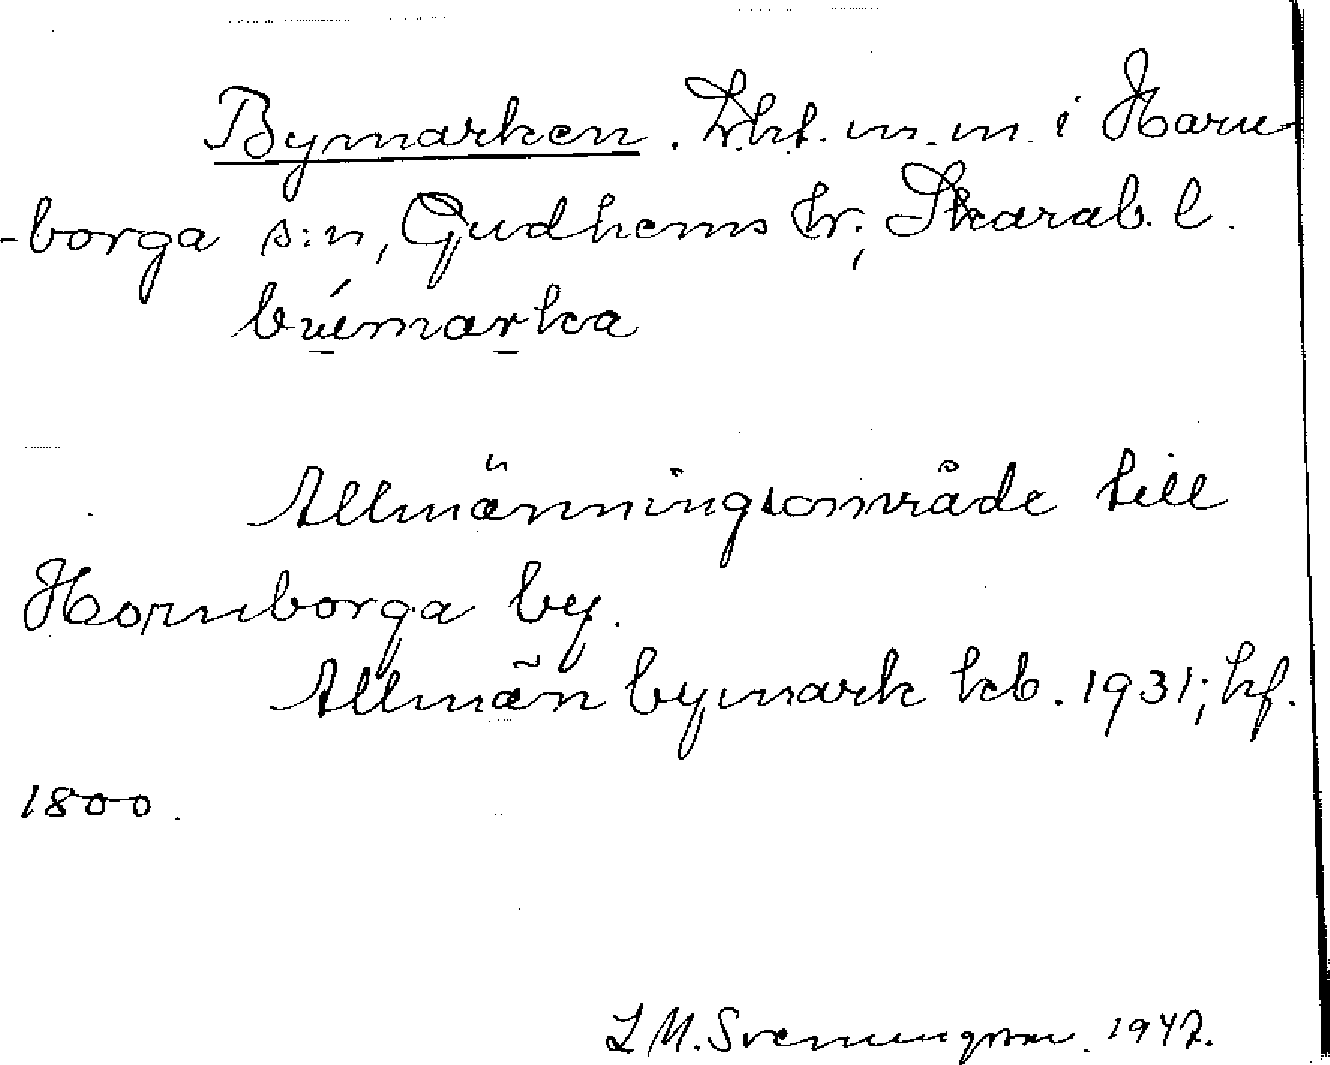 Bymarken. Trkt. m.m. i Horn-
-borga s:n, Gudhems hr; Skarab. l.
búmarka
Allmänningsområde till
Hornborga by.
Allmän bymark kb. 1931; hf.
1800.
L M. Svenungsson. 1942.